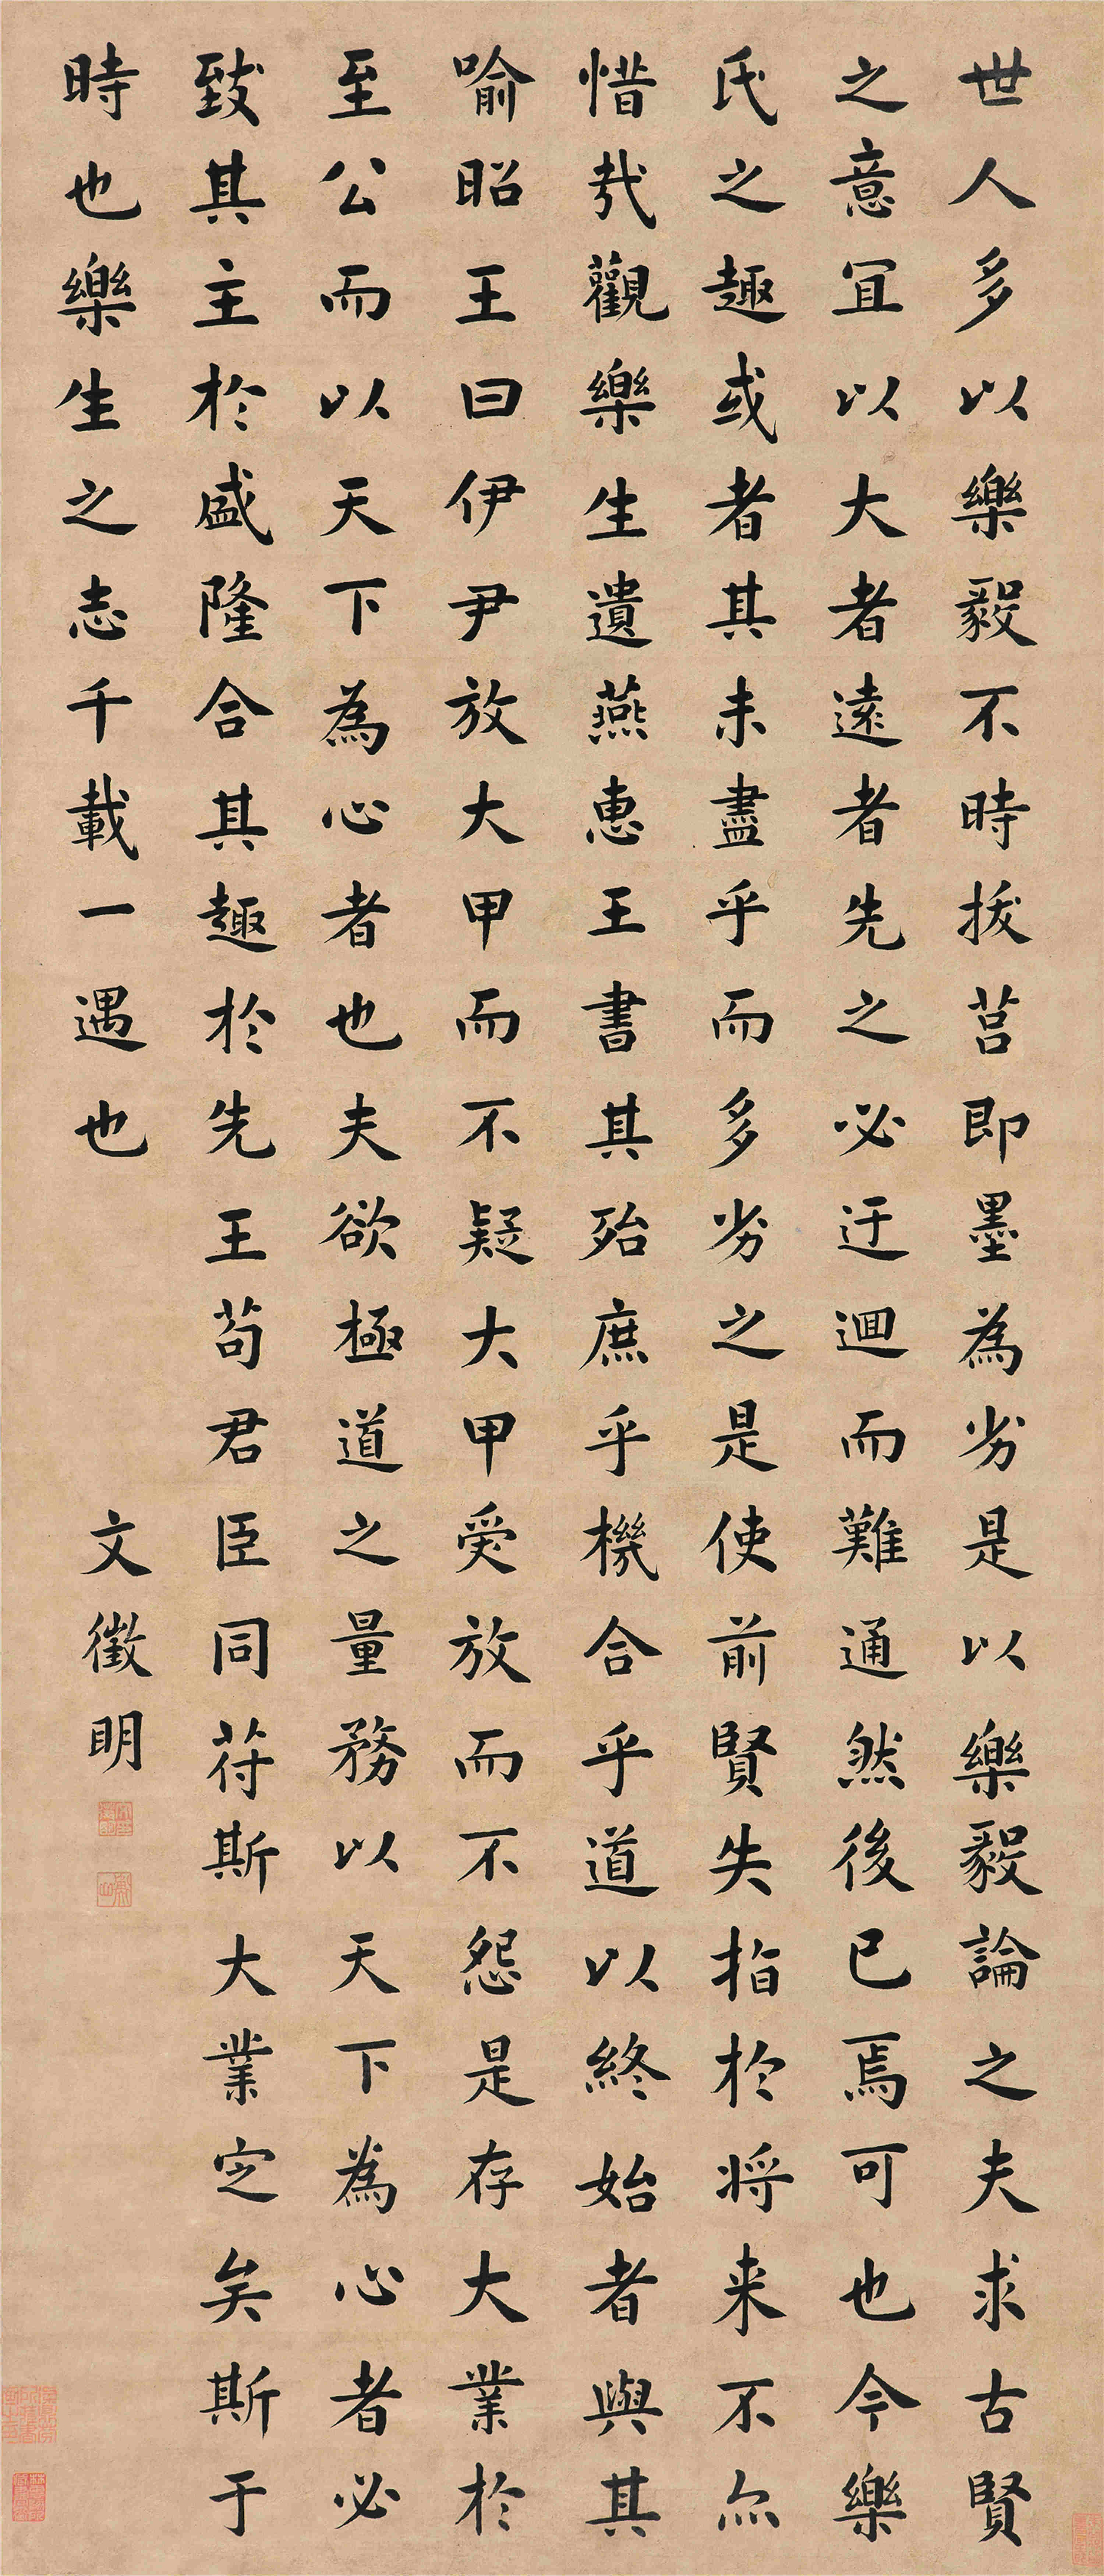 世人多以樂毅不時拔莒即墨為劣是以樂毅論之夫求古賢
之意宜以大者遠者先之必迂迴而難通然後已焉可也今樂
氏之趣或者其未盡乎而多劣之是使前賢失指於将来不尒
惜㦲觀樂生遺燕惠王書其殆庶乎機合乎道以終始者與其
喻昭王曰伊尹放大甲而不疑大甲受放而不怨是存大業於
至公而以天下為心者也夫欲極道之量務以天下為心者必
致其主於盛隆合其趣於先王苟君臣同苻斯大業定矣斯于
時也樂生之志千載一遇也 文徵明